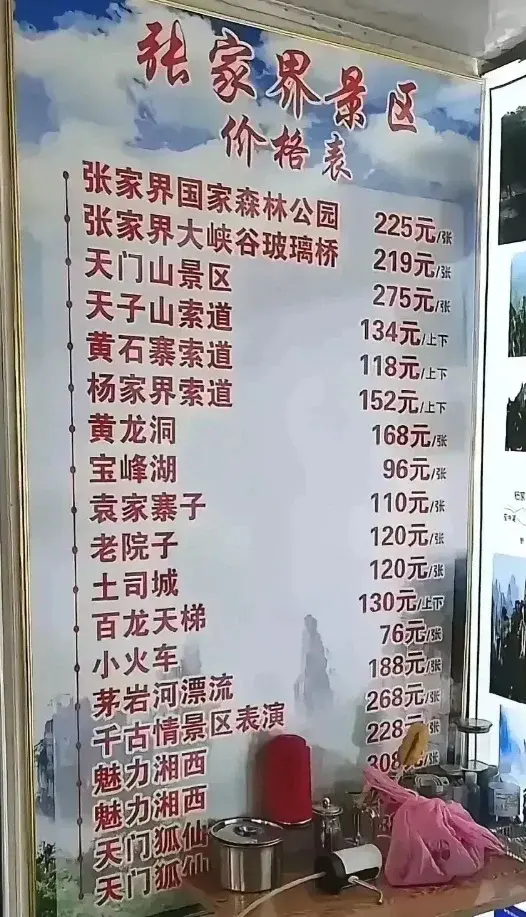 张家界景区
价格表
张家界国家森林公园 225元/张
张家界大峡谷玻璃桥 219元/张
天门山景区 275元/张
天子山索道 134元/上下
黄石寨索道 118元/上下
杨家界索道 152元/上下
黄龙洞 168元/张
宝峰湖 96元/张
袁家寨子 110元/张
老院子 120元/张
土司城 120元/张
百龙天梯 130元/上下
小火车 76元/张
茅岩河漂流 188元/张
千古情景区表演 268元/张
魅力湘西 228元
魅力湘西 308
天门狐仙
天门狐仙